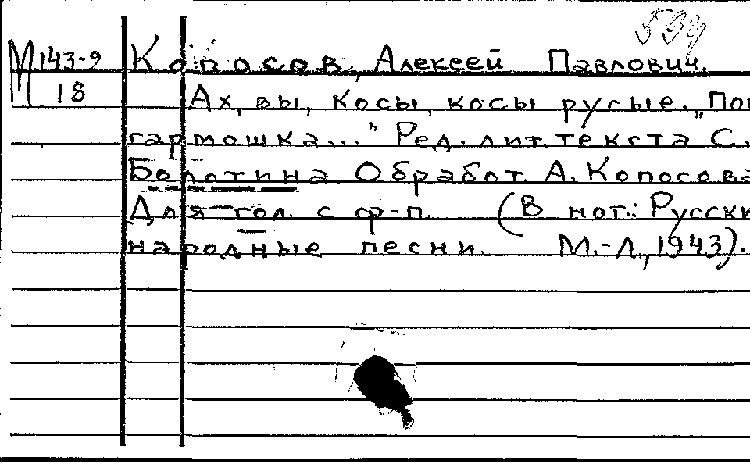 539
М 143-9
18
Копосов, Алексей Павлович.
Ах, вы, косы, косы русые. „Пои
гармошка..." Ред. лит. текста С.
Болотина Обработ А. Копосова
Для гол. с ф-п. (В нот.: Русски
народные песни. М.-Л., 1943).